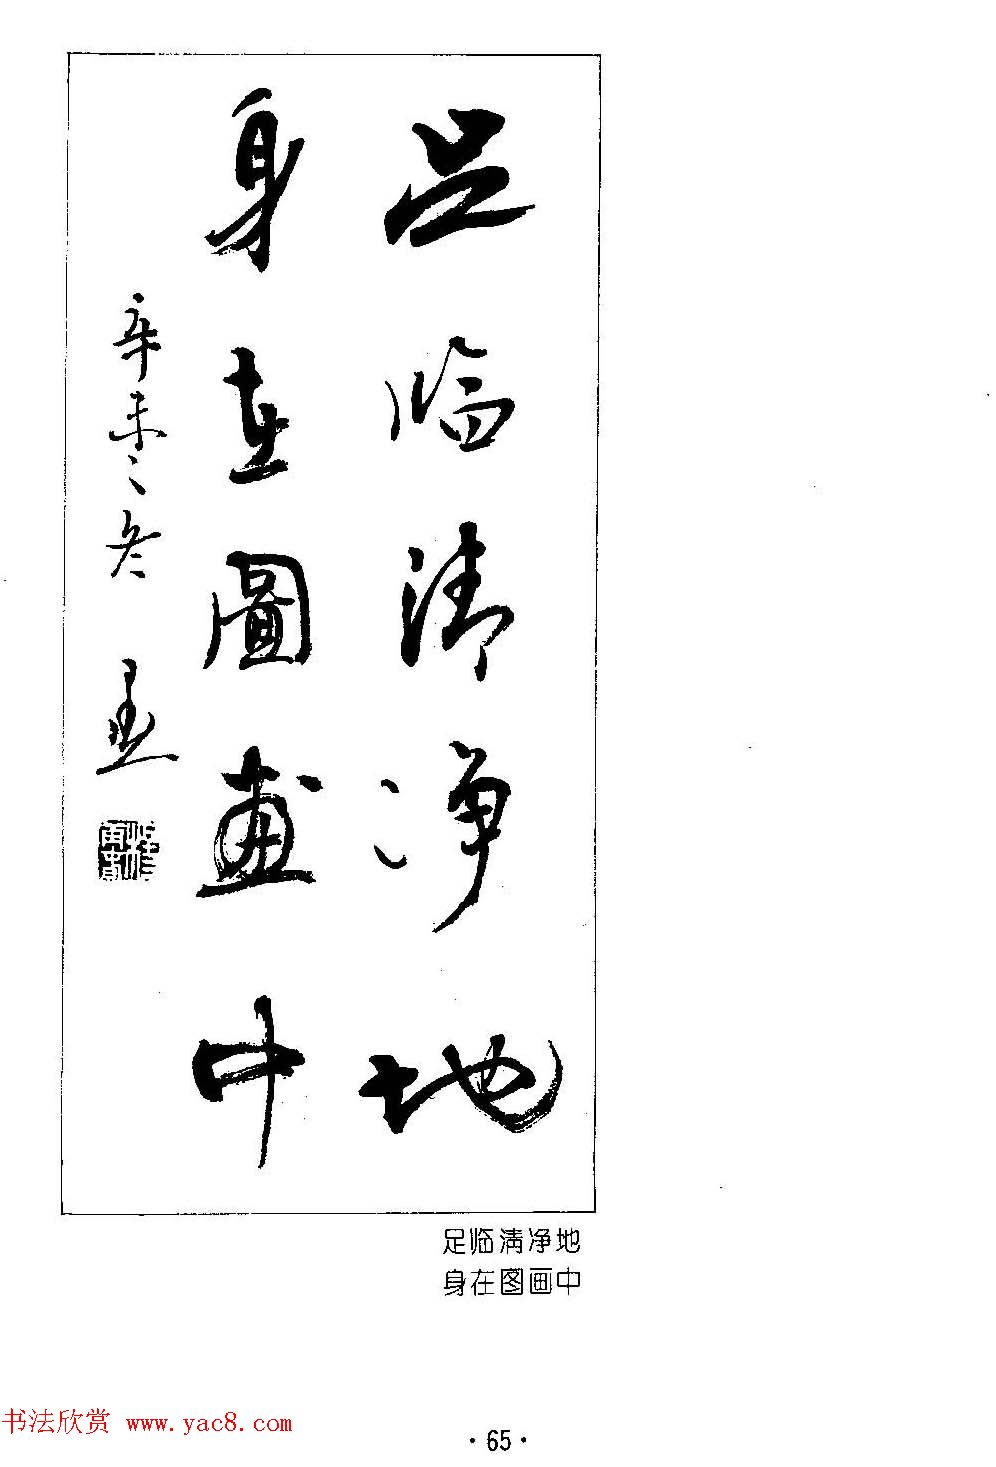 足临清净地
身在圖畫中
辛未之冬
足临清净地
身在图画中
书法欣赏 www.yac8.com
·65·